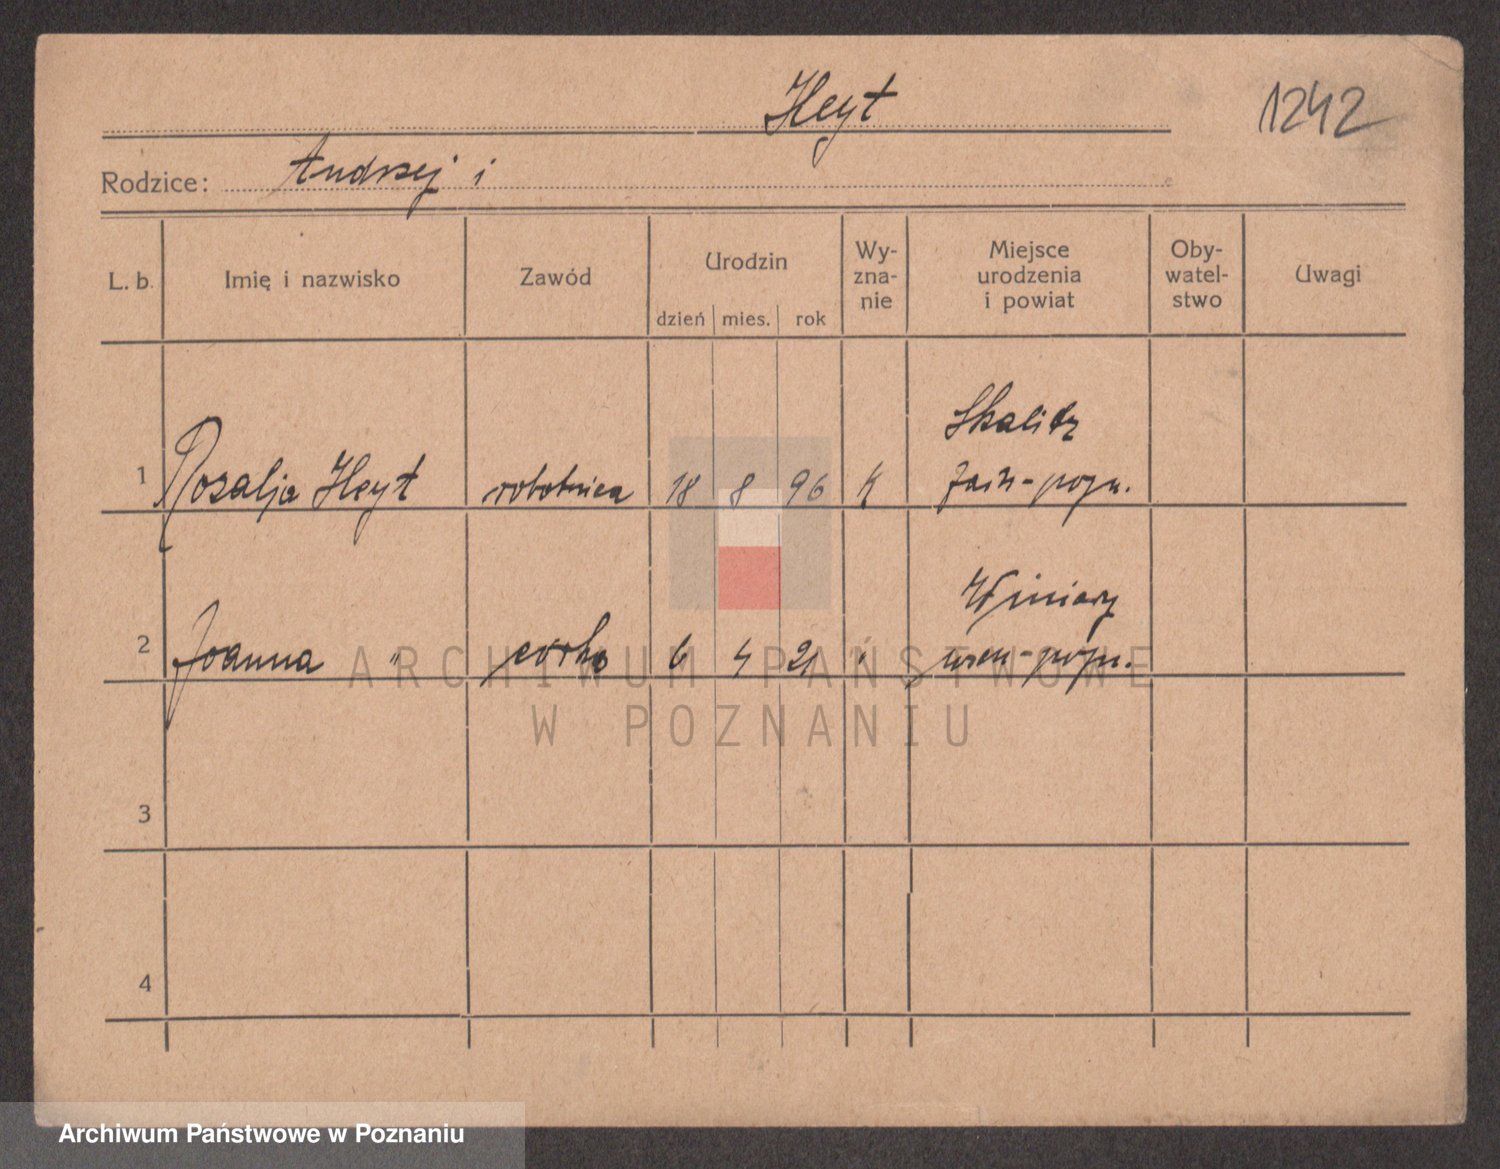 Heyt
1242
Rodzice: Andrzej i
L. b. Imię i nazwisko Zawód Urodzin dzień mies. rok Wy-zna-nie Miejsce urodzenia i powiat Oby-watel-stwo Uwagi
Skalitz
1 Rozalja Heyt robotnica 18 8 96 K
Winiary
2 Joanna " córka 6 4 21 "
ARCHIWUM PAŃSTWOWE
W POZNANIU
3
4
Archiwum Państwowe w Poznaniu